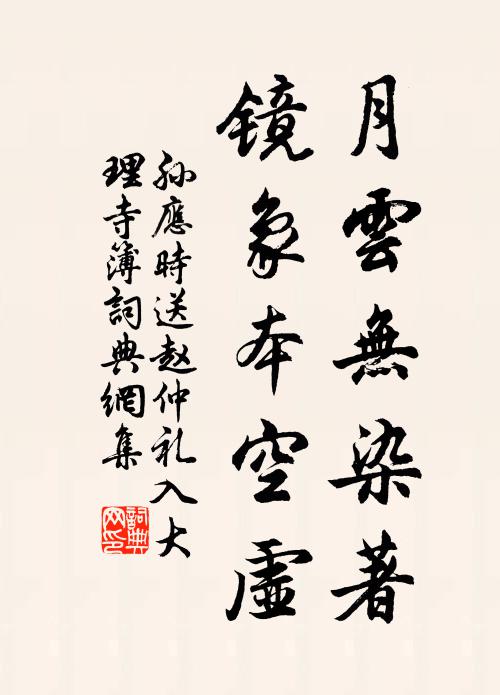 月雲無染著
镜象本空虛
孙應時送赵仲礼入大
理寺簿詞典網集
詞典
网印